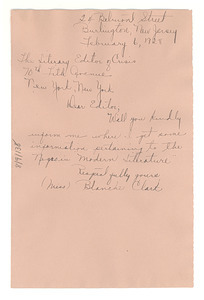 20 Belmont Street
Burlington, New Jersey
February 6, 1928
The Literary Editor of Crisis
70 5th Avenue
New York New York
Dear Editor,
Will you kindly
inform me where I get some
information pertaining to the
"Negro in Modern Literature"
Respectfully yours
(Miss) Blanche Clark